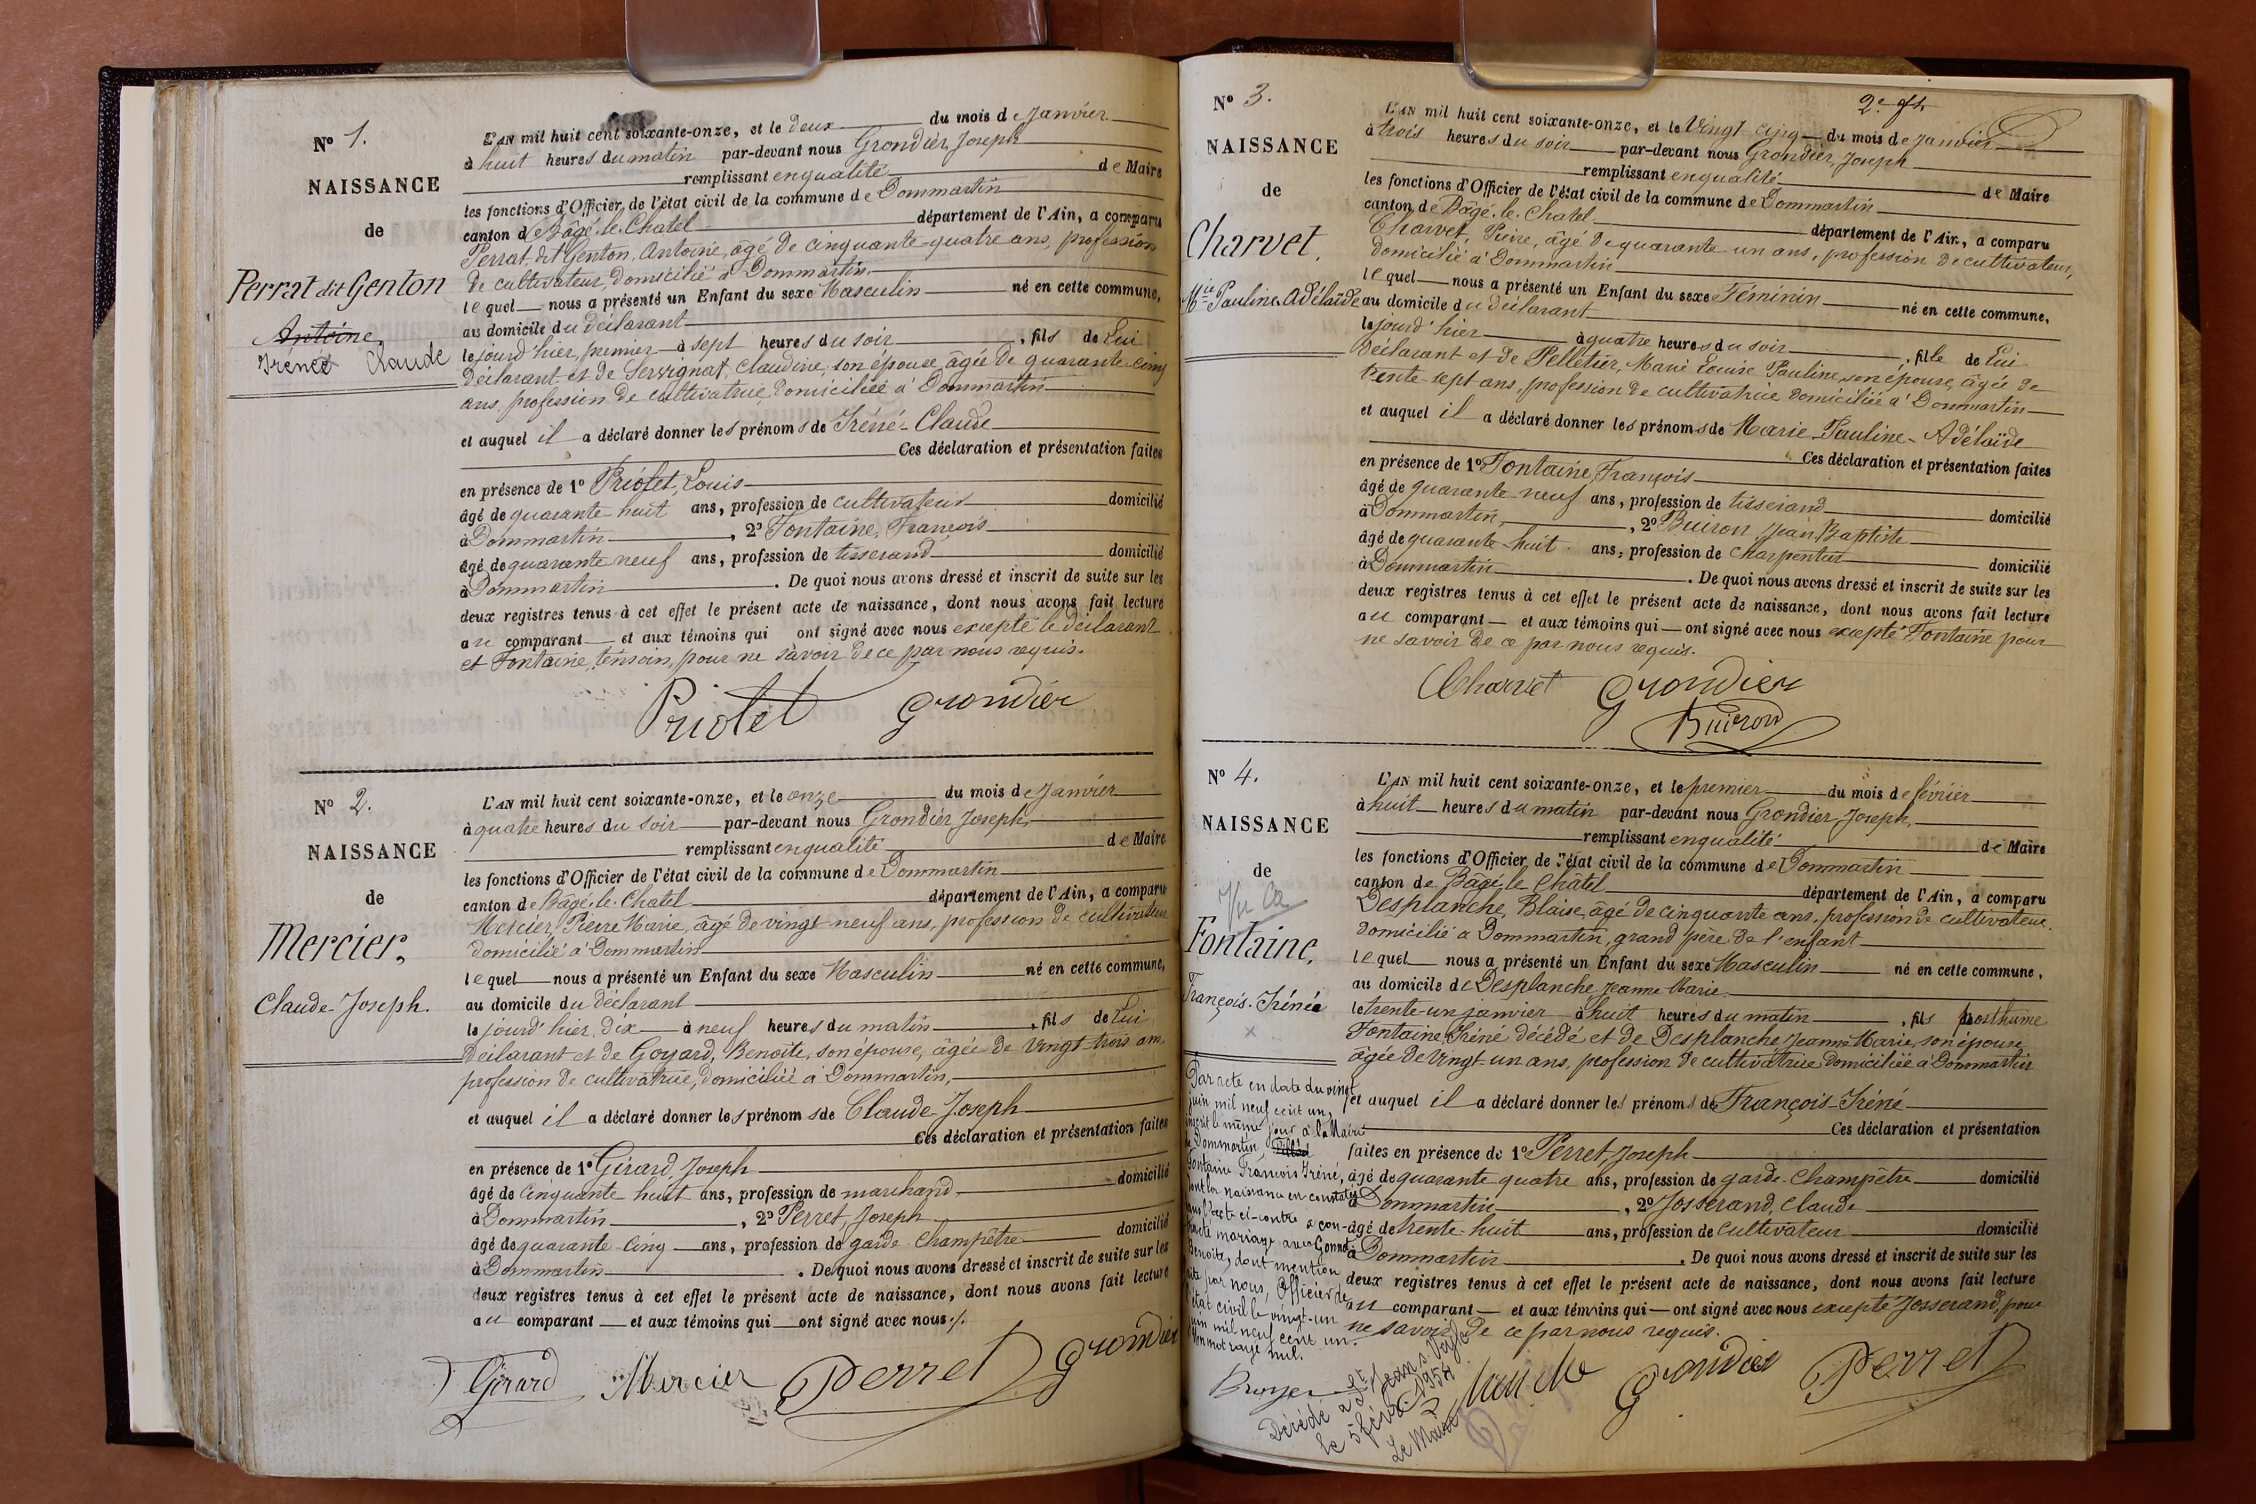 N° 1.
NAISSANCE
de
Perrat dit Genton
Antoine,
Iréné Claude
L'AN mil huit cent soixante-onze, et le deux du mois de Janvier
à huit heures du matin par-devant nous Grondier, Joseph
remplissant en qualité de Maire
les fonctions d'Officier de l'état civil de la commune de Dommartin
canton de Bâgé-le-Chatel département de l'Ain, a comparu
Perrat dit Genton, Antoine, âgé de cinquante-quatre ans, profession
de cultivateur, domicilié à Dommartin
lequel nous a présenté un Enfant du sexe Masculin né en cette commune,
au domicile du déclarant
le jourd'hier, premier à sept heures du soir, fils de Lui
déclarant et de Servignat, Claudine, son épouse, âgée de quarante-cinq
ans, profession de cultivatrice, domiciliée à Dommartin
et auquel il a déclaré donner les prénoms de Iréné-Claude
Ces déclaration et présentation faites
en présence de 1° Priolet, Louis
âgé de quarante huit ans, profession de cultivateur domicilié
à Dommartin, 2° Fontaine, François
âgé de quarante neuf ans, profession de tisserand domicilié
à Dommartin. De quoi nous avons dressé et inscrit de suite sur les
deux registres tenus à cet effet le présent acte de naissance, dont nous avons fait lecture
au comparant et aux témoins qui ont signé avec nous excepté le déclarant
et Fontaine, témoin, pour ne savoir de ce par nous requis.
Priolet Grondier
N° 2.
NAISSANCE
de
Mercier,
Claude-Joseph.
L'AN mil huit cent soixante-onze, et le onze du mois de Janvier
à quatre heures du soir par-devant nous Grondier Joseph,
remplissant en qualité de Maire
les fonctions d'Officier de l'état civil de la commune de Dommartin
canton de Bâgé-le-Chatel département de l'Ain, a comparu
Mercier, Pierre Marie, âgé de vingt-neuf ans, profession de cultivateur
domicilié à Dommartin
lequel nous a présenté un Enfant du sexe Masculin né en cette commune,
au domicile du déclarant
le jourd'hier, dix à neuf heures du matin, fils de Lui
déclarant et de Goyard, Benoîte, son épouse, âgée de vingt-trois ans,
profession de cultivatrice, domiciliée à Dommartin,
et auquel il a déclaré donner les prénoms de Claude-Joseph
Ces déclaration et présentation faites
en présence de 1° Girard, Joseph
âgé de cinquante huit ans, profession de marchand domicilié
à Dommartin, 2° Perret, Joseph
âgé de quarante-cinq ans, profession de garde-champêtre domicilié
à Dommartin. De quoi nous avons dressé et inscrit de suite sur les
deux registres tenus à cet effet le présent acte de naissance, dont nous avons fait lecture
au comparant et aux témoins qui ont signé avec nous ./.
Girard Mercier Perret Grondier
2e
N° 3.
NAISSANCE
de
Charvet,
Mie Pauline Adélaïde
L'AN mil huit cent soixante-onze, et le Vingt-cinq du mois de Janvier
à trois heures du soir par-devant nous Grondier, Joseph
remplissant en qualité de Maire
les fonctions d'Officier de l'état civil de la commune de Dommartin
canton de Bâgé-le-Chatel département de l'Ain, a comparu
Charvet, Pierre, âgé de quarante-un ans, profession de cultivateur,
domicilié à Dommartin
lequel nous a présenté un Enfant du sexe Féminin né en cette commune,
au domicile du déclarant
le jourd'hier à quatre heures du soir, fille de Lui
déclarant et de Pelletier, Marie Louise Pauline, son épouse, âgée de
trente-sept ans, profession de cultivatrice domiciliée à Dommartin
et auquel il a déclaré donner les prénoms de Marie-Pauline-Adélaïde
Ces déclaration et présentation faites
en présence de 1° Fontaine, François
âgé de quarante-neuf ans, profession de tisserand domicilié
à Dommartin, 2° Buiron Jean Baptiste
âgé de quarante-huit ans, profession de Charpentier domicilié
à Dommartin. De quoi nous avons dressé et inscrit de suite sur les
deux registres tenus à cet effet le présent acte de naissance, dont nous avons fait lecture
au comparant et aux témoins qui ont signé avec nous excepté Fontaine pour
ne savoir de ce par nous requis.
Charvet Grondier
Buiron
N° 4.
NAISSANCE
de
Fontaine,
François-Irénée
L'AN mil huit cent soixante-onze, et le premier du mois de février
à huit heures du matin par-devant nous Grondier Joseph,
remplissant en qualité de Maire
les fonctions d'Officier de l'état civil de la commune de Dommartin
canton de Bâgé-le-Châtel département de l'Ain, a comparu
Desplanche, Blaise, âgé de cinquante ans, profession de cultivateur
domicilié à Dommartin, grand père de l'enfant
lequel nous a présenté un Enfant du sexe Masculin né en cette commune,
au domicile de Desplanche Jeanne Marie
le trente-un janvier à huit heures du matin, fils posthume
Fontaine, Iréné décédé et de Desplanche Jeanne Marie, son épouse,
âgée de vingt-un ans, profession de cultivatrice domiciliée à Dommartin
et auquel il a déclaré donner les prénoms de François-Iréné
Ces déclaration et présentation
faites en présence de 1° Perret, Joseph
âgé de quarante quatre ans, profession de garde-champêtre domicilié
à Dommartin, 2° Josserand, Claude
âgé de trente-huit ans, profession de cultivateur domicilié
à Dommartin. De quoi nous avons dressé et inscrit de suite sur les
deux registres tenus à cet effet le présent acte de naissance, dont nous avons fait lecture
au comparant et aux témoins qui ont signé avec nous excepté Josserand, pour
ne savoir de ce par nous requis.
Grondier Perret
Par acte en date du vingt
juin mil neuf cent un,
inscrit le même jour à la Mairie
de Dommartin,
Fontaine François Iréné,
dont la naissance est constatée
dans l'acte ci-contre a con-
tracté mariage avec Gonnet
Benoîte, dont mention
faite par nous, Officier de
l'état civil le vingt-un
juin mil neuf cent un.
Un mot rayé nul.
Broyer
Décédé à St Jean s. Veyle
le 5 février 1954
Le Maire